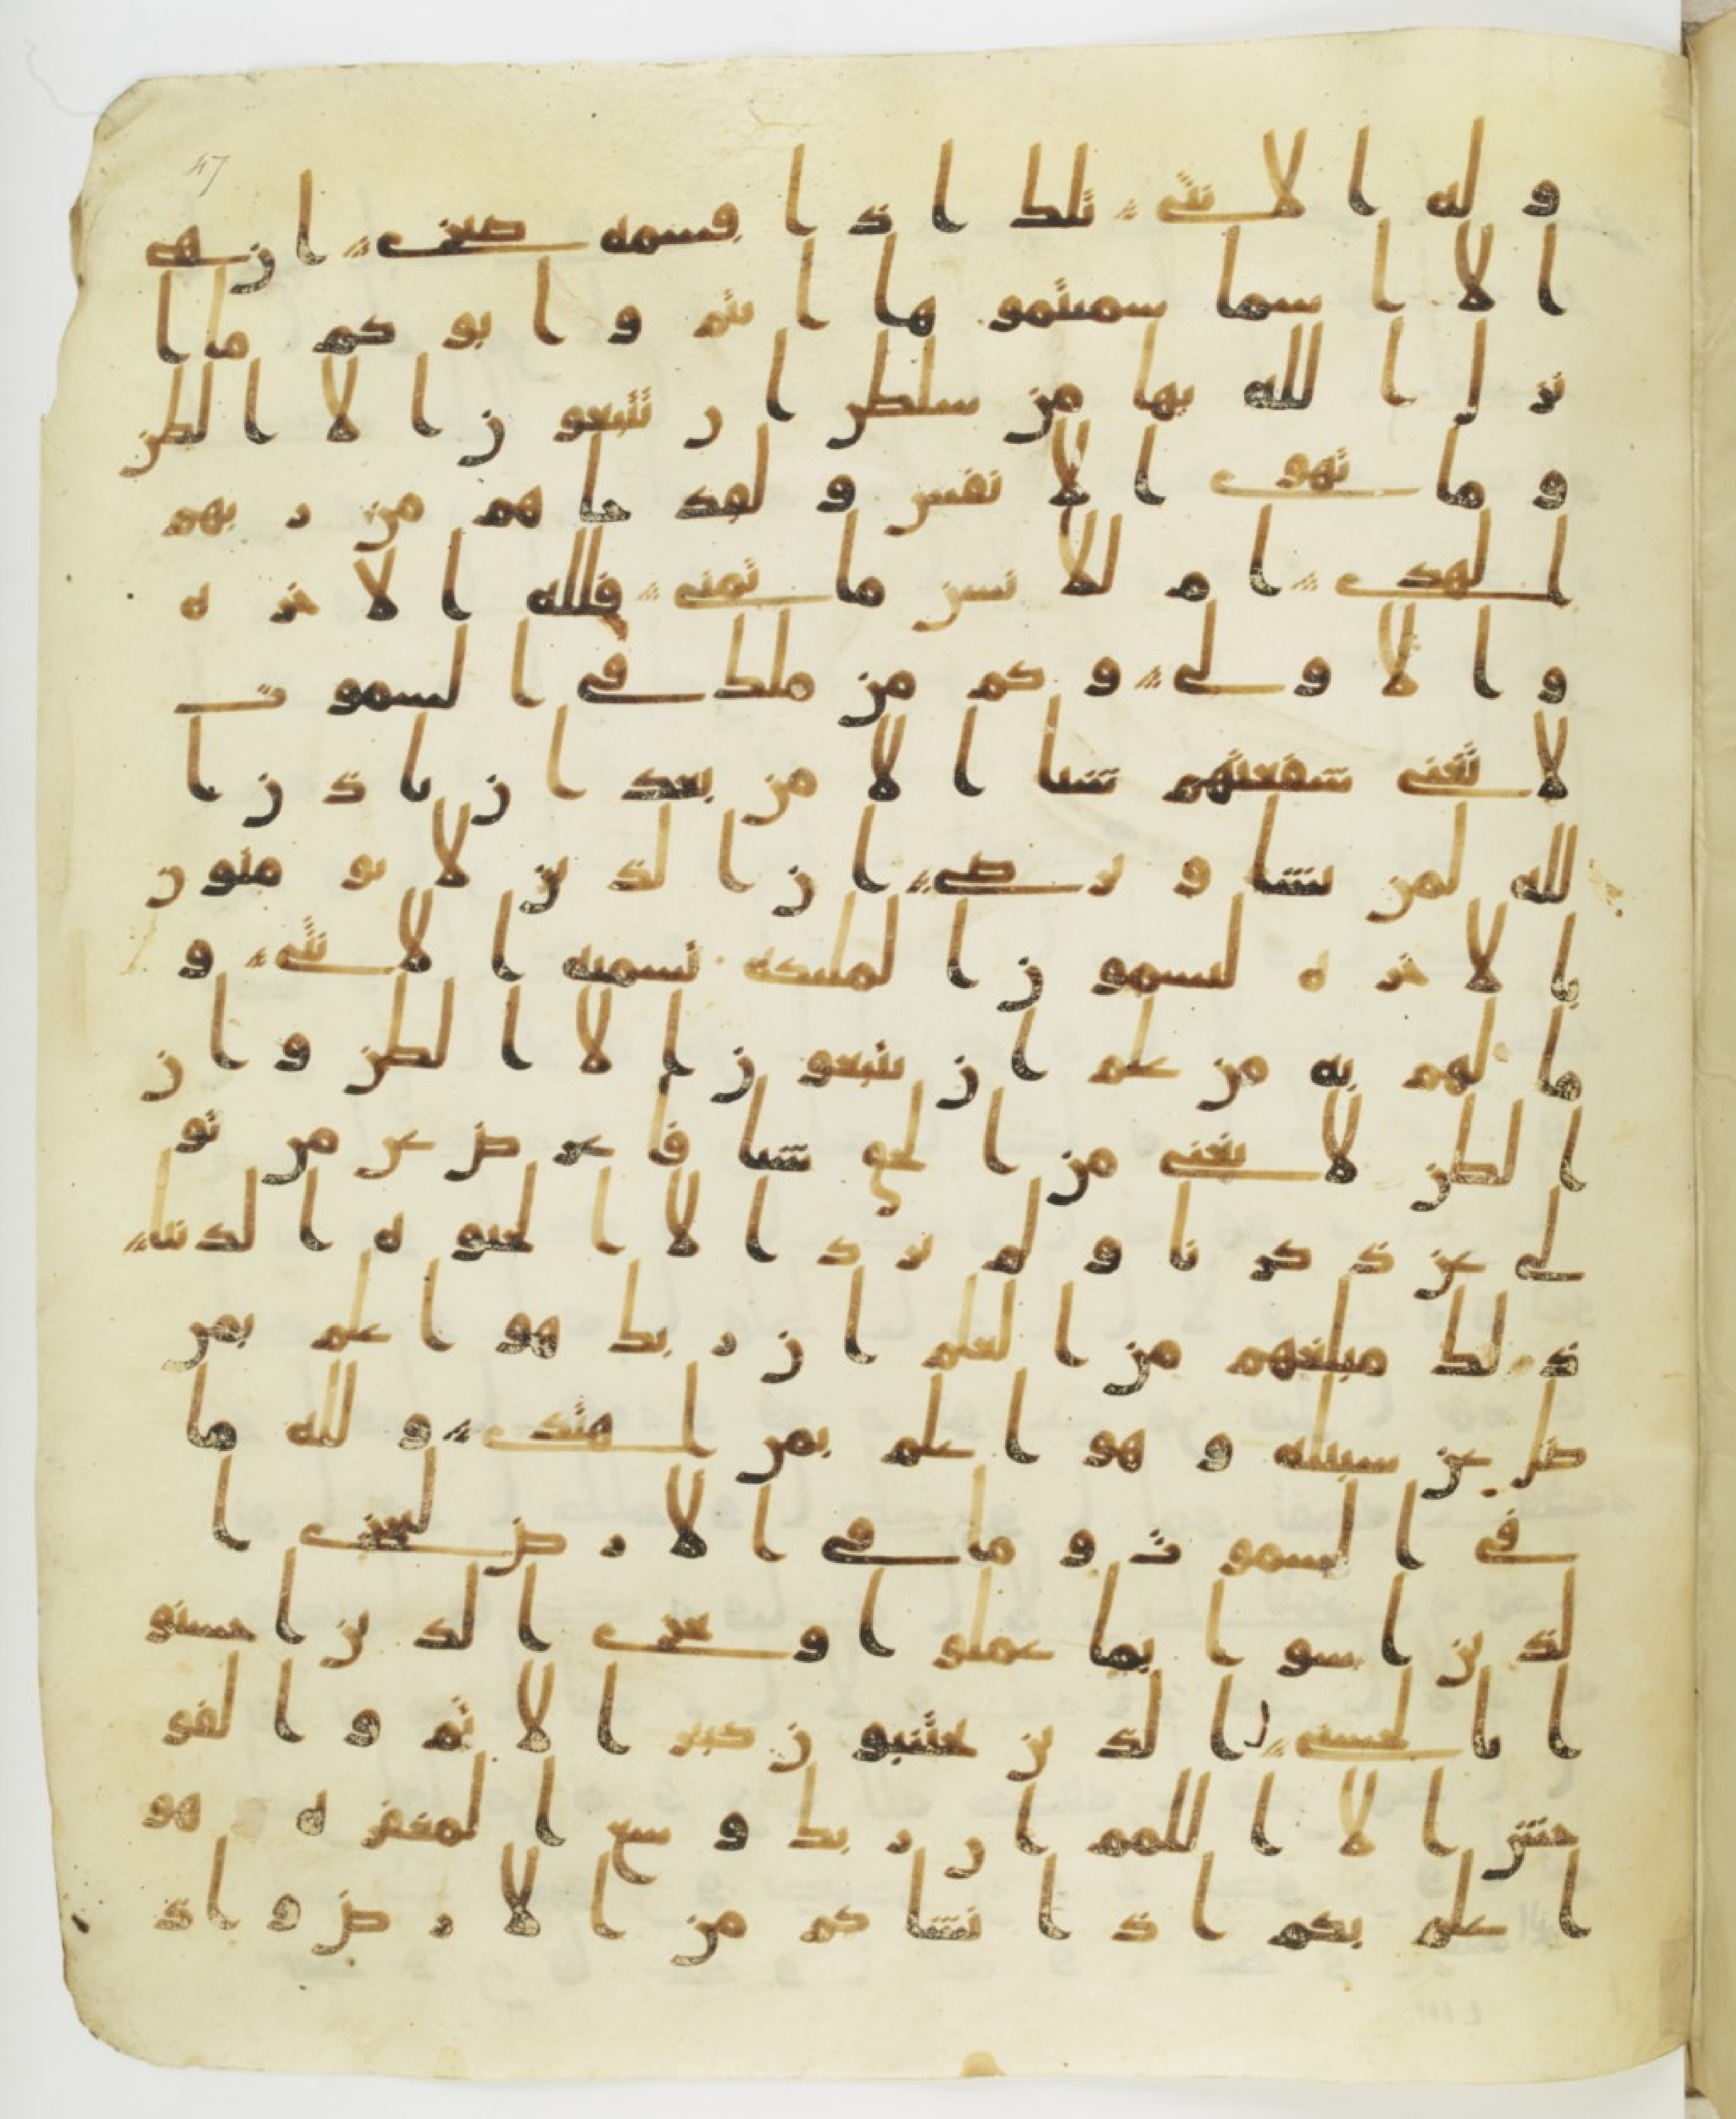 47
وله الانثى تلك اذا قسمه ضيزى ان هى
الا اسما سميتموها انتم وابوكم ما ا
نزل الله بها من سلطن ان يتبعون الا الظن
وما تهوى الانفس ولقد جاهم من ربهم
الهدى ام للانسن ما تمنى فلله الاخره
والاولى وكم من ملك فى السموت
لا تغنى شفعتهم شيا الا من بعد ان ياذن ا
لله لمن يشا ويرضى ان الذين لا يومنون
بالاخره ليسمون الملئكه تسميه الانثى و
ما لهم به من علم ان يتبعون الا الظن وان
الظن لا يغنى من الحق شيا فاعرض عن من تو
لى عن ذكرنا ولم يرد الا الحيوه الدنيا
ذلك مبلغهم من العلم ان ربك هو اعلم بمن
ضل عن سبيله وهو اعلم بمن اهتدى ولله ما
فى السموت وما فى الارض ليجزى ا
لذين اسوا بما عملوا ويجزى الذين احسنو
ا بالحسنى الذين يجتنبون كبير الاثم والفو
حش الا اللمم ان ربك وسع المغفره هو
اعلم بكم اذ انشاكم من الارض واذ